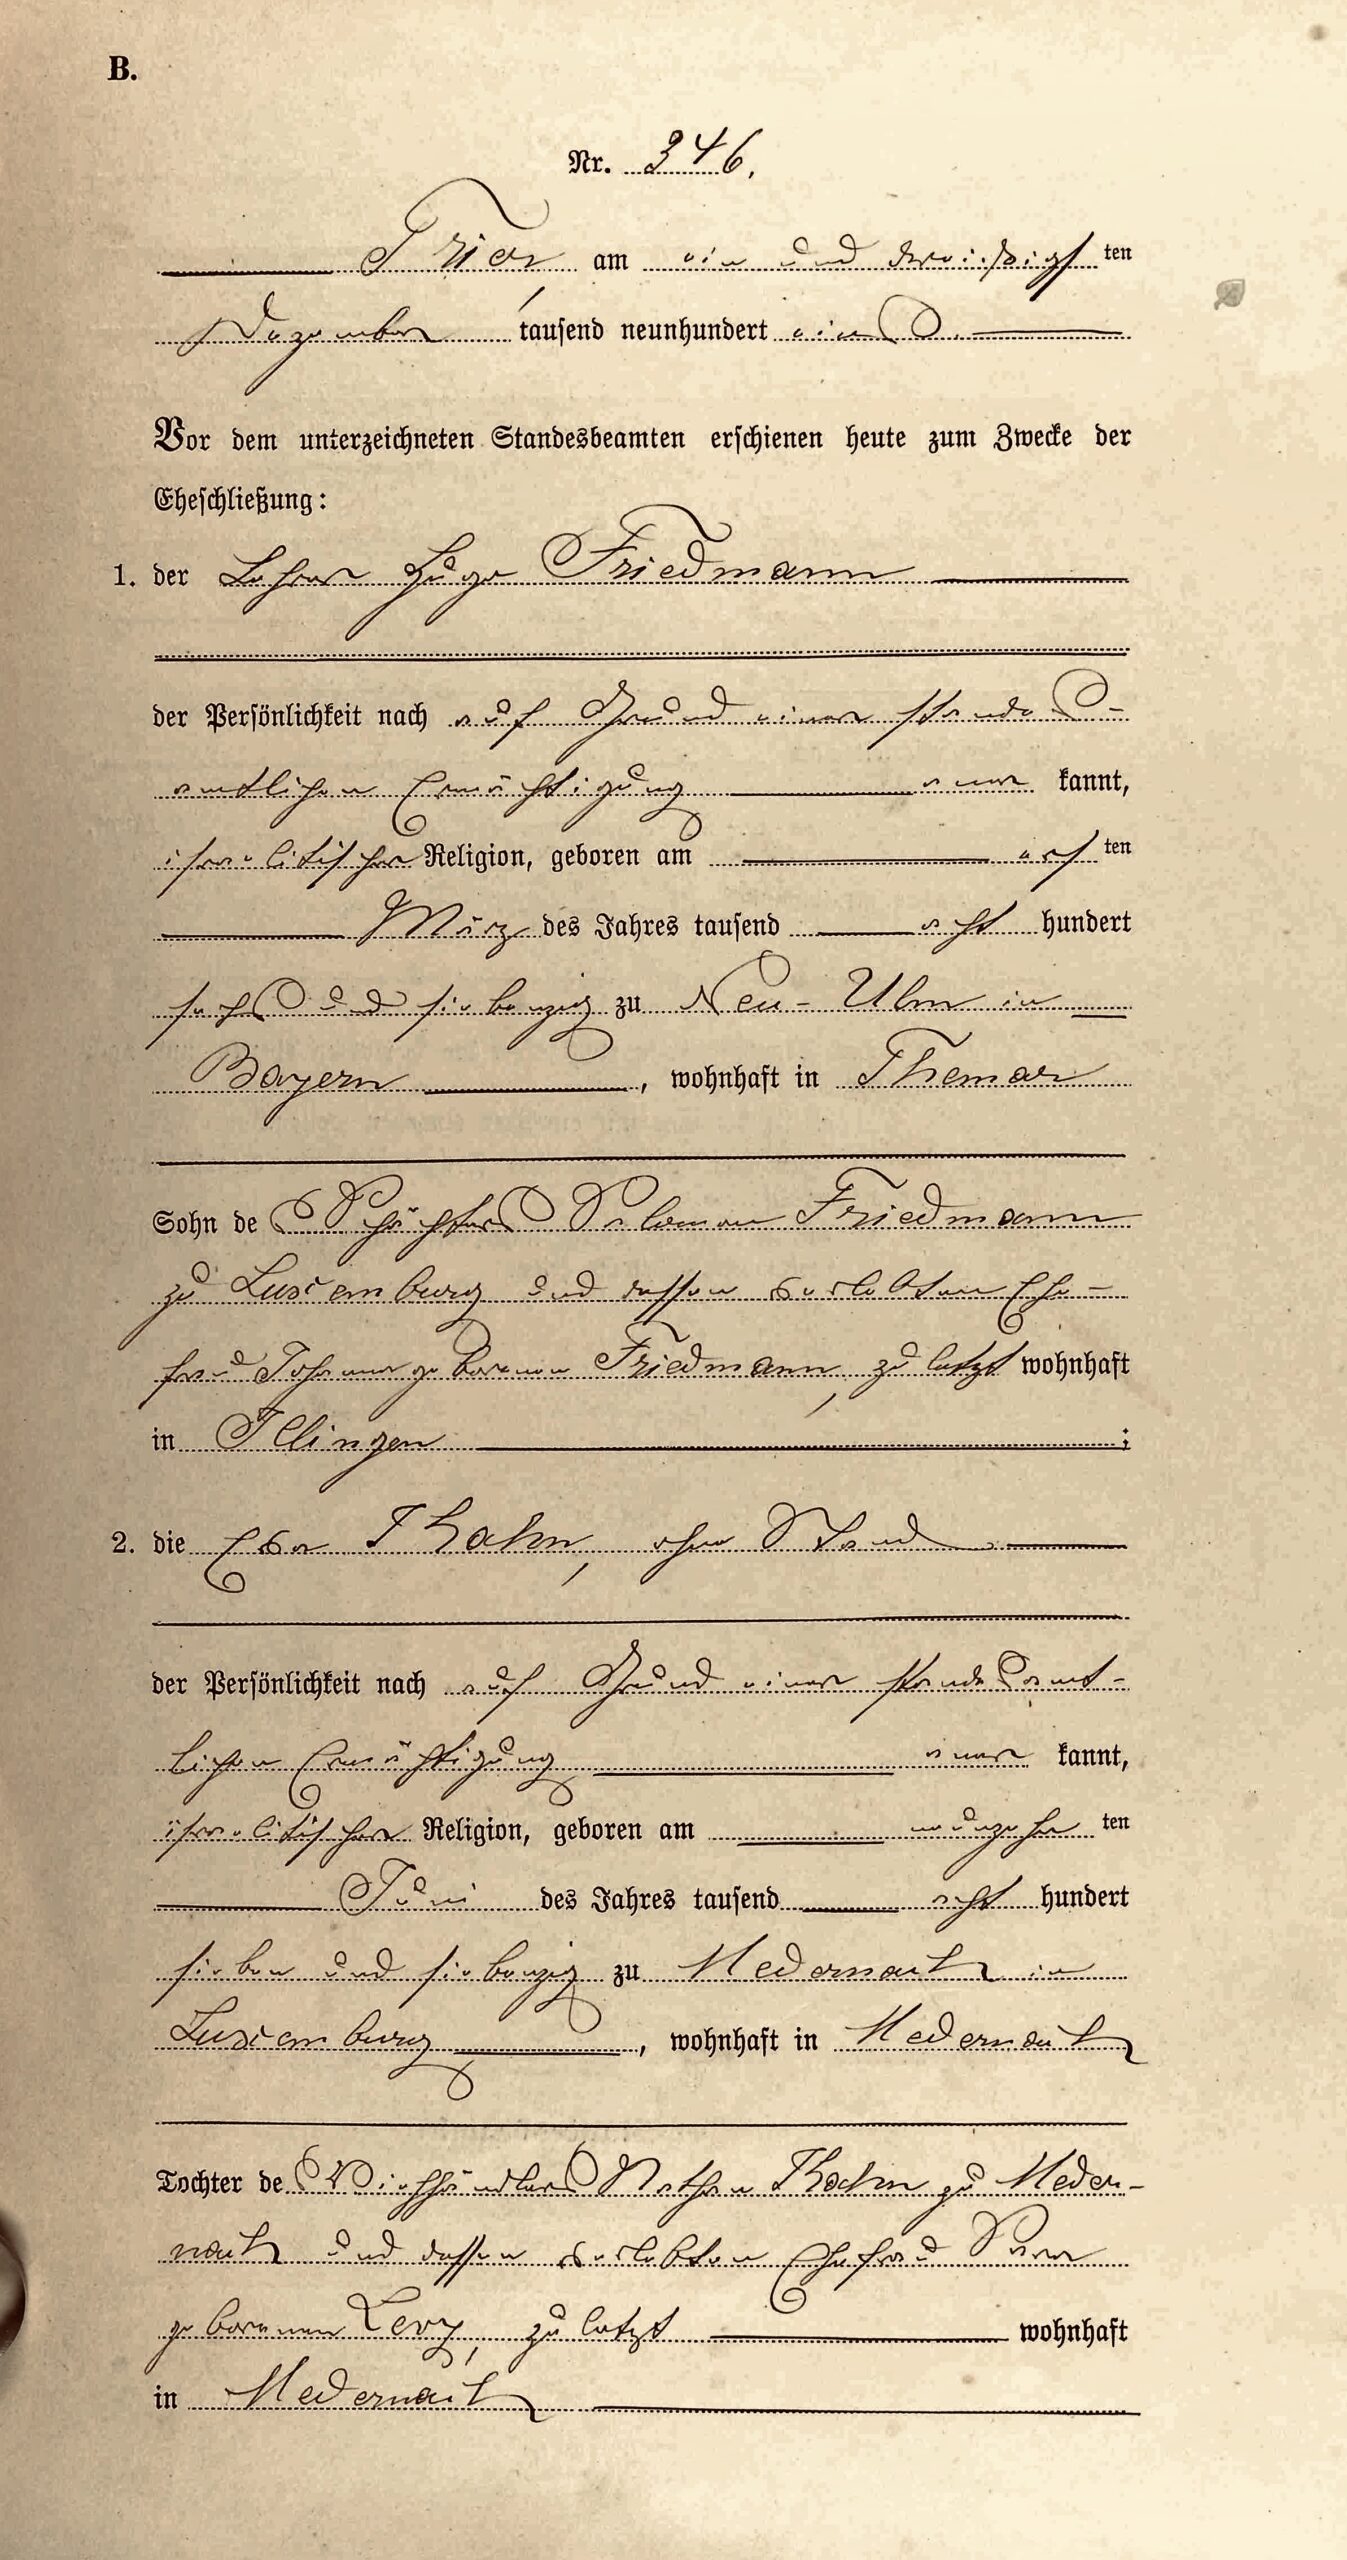 B.
Nr. 346.
Trier, am ein und dreißigsten
Dezember tausend neunhundert eins.
Vor dem unterzeichneten Standesbeamten erschienen heute zum Zwecke der
Eheschließung:
1. der Lehrer Hugo Friedmann
der Persönlichkeit nach auf Grund einer standes-
amtlichen Ermächtigung aner kannt,
israelitischer Religion, geboren am ersten
März des Jahres tausend acht hundert
sechs und siebenzig zu Neu-Ulm in
Bayern, wohnhaft in Themar
Sohn des Schächters Salomon Friedmann
zu Luxemburg und dessen verlebten Ehe-
frau Johanna geborenen Friedmann, zuletzt wohnhaft
in Illingen;
2. die Eva Kahn, ohne Stand
der Persönlichkeit nach auf Grund einer standesamt-
lichen Ermächtigung aner kannt,
israelitischer Religion, geboren am neunzehn ten
Juni des Jahres tausend acht hundert
sieben und siebenzig zu Medernach in
Luxemburg, wohnhaft in Medernach
Tochter des Viehhändlers Nathan Kahn zu Meder-
nach und dessen verlebten Ehefrau Sara
geborenen Levy, zuletzt wohnhaft
in Medernach